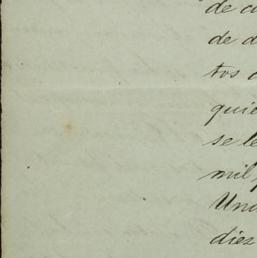 de
de
tos
quie
se le
mil
Una
diez